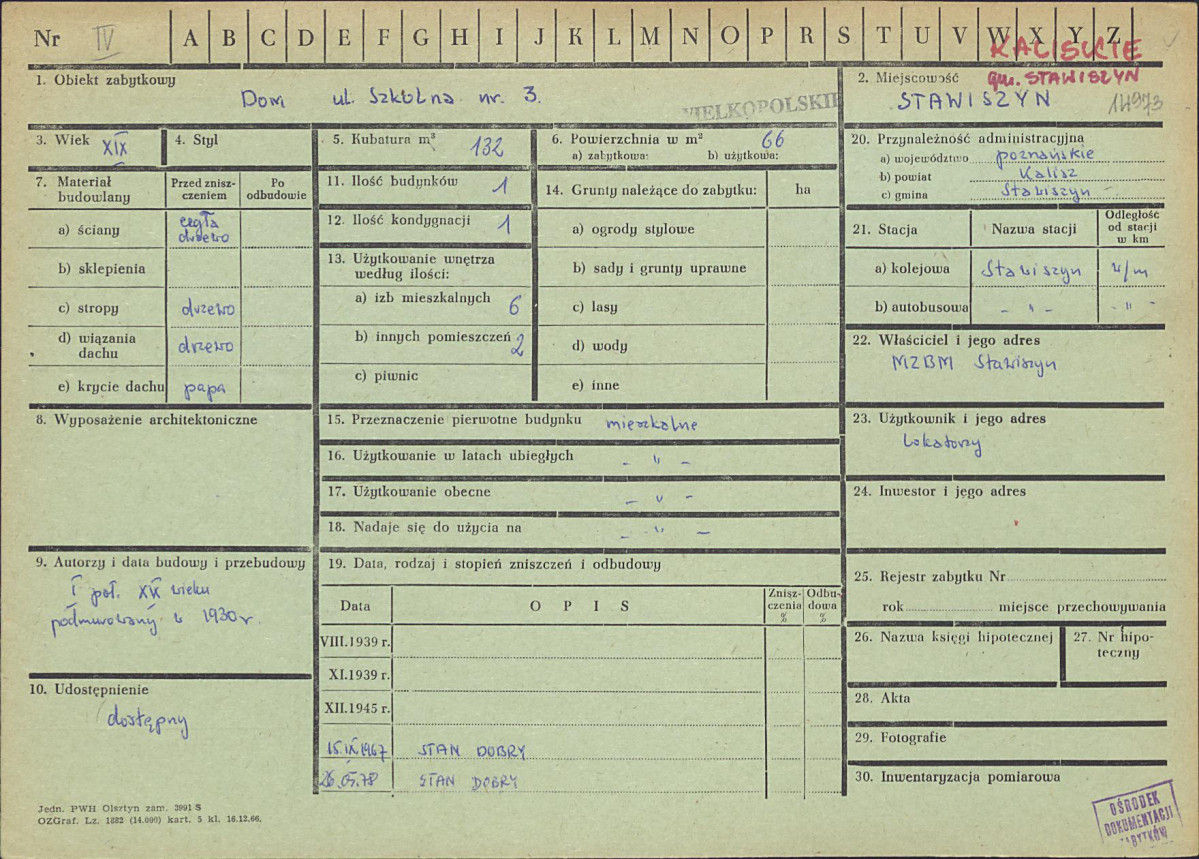 Nr IV A B C D E F G H I J K L M N O P R S T U V W X Y Z
KALISKIE
1. Obiekt zabytkowy
Dom ul. Szkolna nr. 3.
WIELKOPOLSKIE
2. Miejscowość gm. STAWISZYN
STAWISZYN 14973
3. Wiek XIX
4. Styl
5. Kubatura m³ 132
6. Powierzchnia w m² 66
a) zabytkowa: b) użytkowa:
20. Przynależność administracyjna
a) województwo poznańskie
b) powiat Kalisz
c) gmina Stawiszyn
7. Materiał budowlany
Przed zniszczeniem
Po odbudowie
a) ściany cegła drzewo
b) sklepienia
c) stropy drzewo
d) wiązania dachu drzewo
e) krycie dachu papa
11. Ilość budynków 1
12. Ilość kondygnacji 1
13. Użytkowanie wnętrza według ilości:
a) izb mieszkalnych 6
b) innych pomieszczeń 2
c) piwnic
14. Grunty należące do zabytku: ha
a) ogrody stylowe
b) sady i grunty uprawne
c) lasy
d) wody
e) inne
21. Stacja Nazwa stacji Odległość od stacji w km
a) kolejowa Stawiszyn w/m
b) autobusowa - " - - " -
22. Właściciel i jego adres
MZBM Stawiszyn
8. Wyposażenie architektoniczne
15. Przeznaczenie pierwotne budynku mieszkalne
16. Użytkowanie w latach ubiegłych - " -
17. Użytkowanie obecne - " -
18. Nadaje się do użycia na - " -
23. Użytkownik i jego adres
Lokatorzy
24. Inwestor i jego adres
9. Autorzy i data budowy i przebudowy
I poł. XIX wieku
podmurowany w 1930 r.
19. Data, rodzaj i stopień zniszczeń i odbudowy
Data OPIS Zniszczenia % Odbudowa %
VIII.1939 r.
XI.1939 r.
XII.1945 r.
15.IX.1967 STAN DOBRY
26.05.78 STAN DOBRY
25. Rejestr zabytku Nr
rok miejsce przechowywania
26. Nazwa księgi hipotecznej
27. Nr hipoteczny
10. Udostępnienie
dostępny
28. Akta
29. Fotografie
30. Inwentaryzacja pomiarowa
Jedn. PWH Olsztyn zam. 3991 S
OZGraf. Lz. 1882 (14.000) kart. 5 kl. 16.12.66.
OŚRODEK
DOKUMENTACJI
ZABYTKÓW